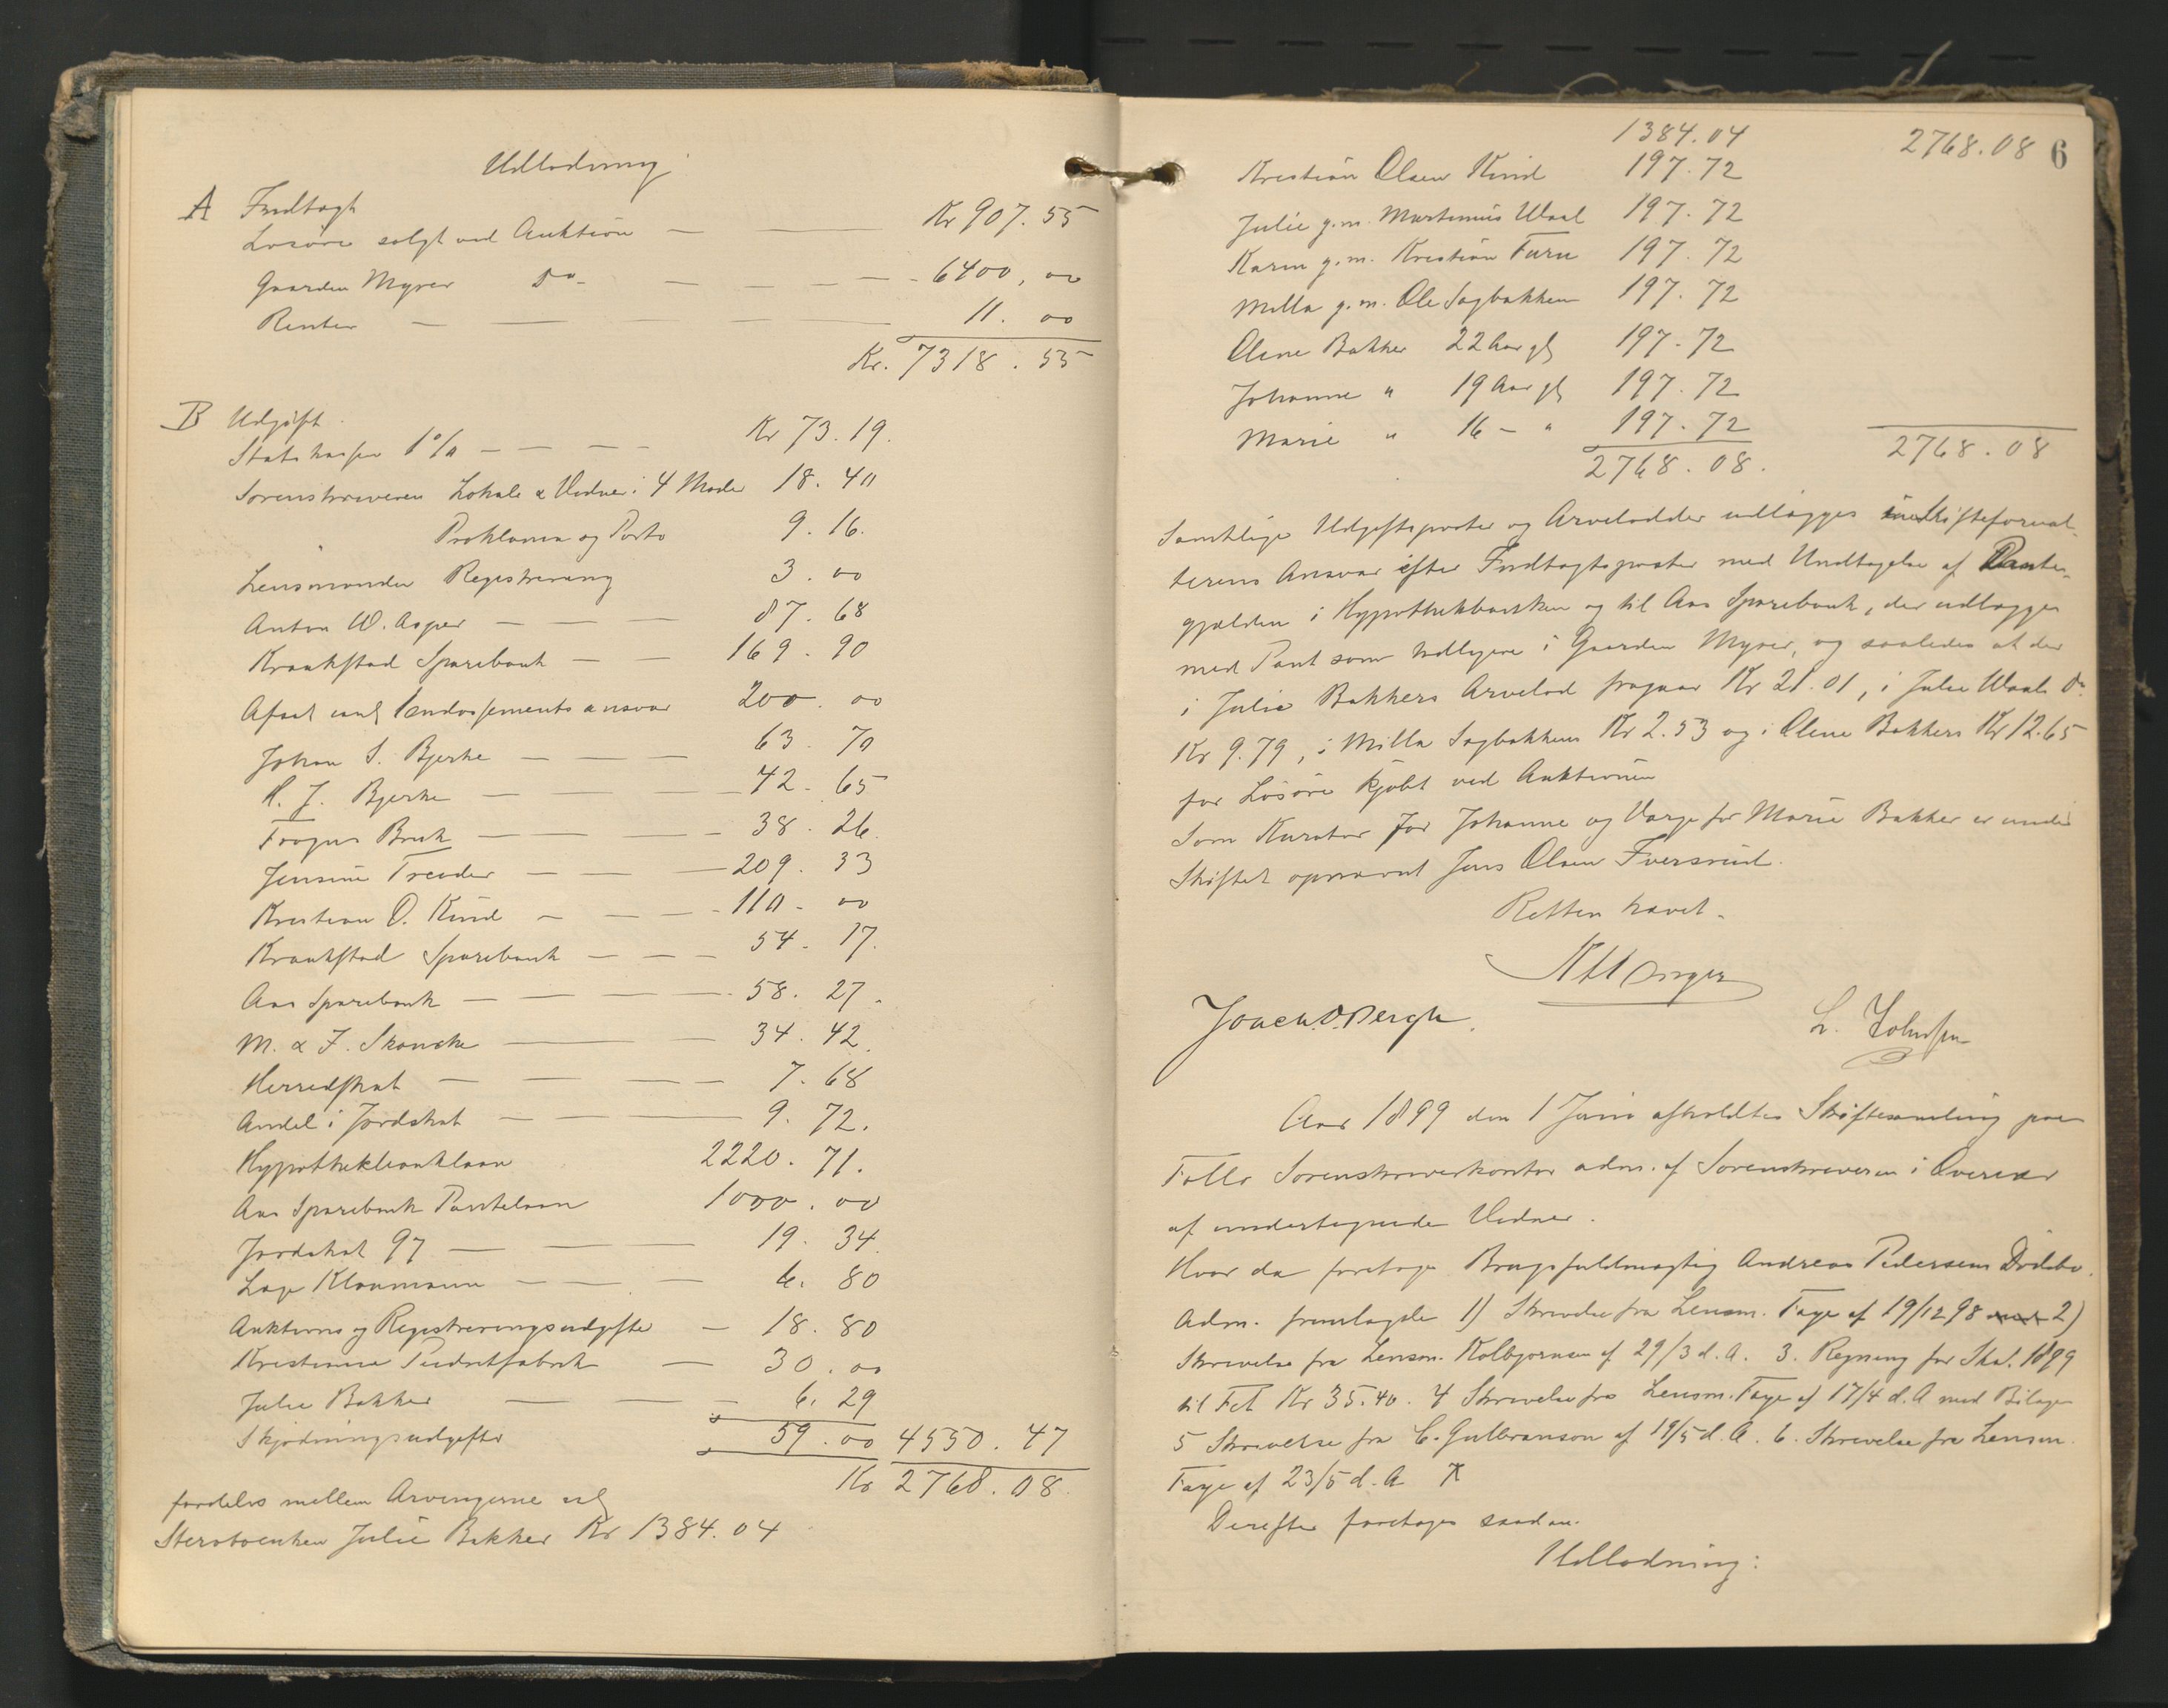 Udlodning
A Indtægt
Løsøre solgt ved Auktion — — Kr 907.55
Gaarden Myrer do — — — — 6400,00
Renter — — — — 11.00
Kr. 7318.55
B Udgift.
Statskassen 1% — — — — Kr 73.19.
Sorenskriveren Lokale & Vidner i 4 Møder 18.40
Proklama og Porto 9.16.
Lensmanden Registrering 3.00
Anton W. Asper — — — 87.68
Kraakstad Sparebank — — 169.90
Afsat anl Endossementsansvar 200.00
Johan S. Bjerke — — — 63.70
H. J. Bjerke — — — 42.65
Frogner Brug — — — 38.26.
Jensine Treider — — — 209.33
Kristian O. Kind — — — 110.00
Kraakstad Sparebank — — — 54.17.
Aas Sparebank — — — 58.27.
M. & J. Skancke — — — 34.42.
Herredskat — — — 7.68
Andel i Jordskat — — — 9.72.
Hypothekbanklaan 2220.71.
Aas Sparebank Pantelaan 1000.00
Jordskat 97 — — — 19.34.
Lage Klaumann — — — 6.80
Auktions og Registreringsudgifter — 18.80
Kristiania Pudretfabrik — 30.00
Julie Bakker — — 6.29
Skjødningsudgifter 59.00 4550.47
Kr 2768.08.
fordeles mellem Arvingerne
Sterboenken Julie Bakker Kr 1384.04
1384.04 2768.08 6
Kristian Olsen Kind 197.72
Julie g.m. Martinius Waal 197.72
Karen g.m. Kristian Furu 197.72
Milla g.m. Ole Sagbakken 197.72
Oline Bakker 22 Aar gl 197.72
Johanne " 19 Aar gl 197.72
Marie " 16 — " 197.72
2768.08. 2768.08
Samtlige Udgiftsposter og Arvelodder udlægges Skifteforval-
terens Ansvar efter Indtægtsposter med Undtagelse af Pante-
gjælden i Hypothekbanken og til Aas Sparebank, der udlægges
med Pant som tidligere i Gaarden Myrer, og saaledes at der
i Julie Bakkers Arvelod fragaar Kr 21.01, i Julie Waals Do
Kr 9.79, i Milla Sagbakkens Kr 2.53 og i Oline Bakkers Kr 12.65
for Løsøre kjøbt ved Auktionen
Som Kurator for Johanne og Værge for Marie Bakker er under
Skiftet opnævnt Jens Olsen
Retten hævet.
Joach. O. Bergh. L. Johnsen
Aar 1899 den 1 Juni afholdtes Skiftesamling paa
Follo Sorenskriverkontor adm. af Sorenskriveren i Overvær
af undertegnede Vidner.
Hvor da foretoges Brugsfuldmægtig Andreas Pedersens Dødsbo.
Adm. fremlagde 1) Skrivelse fra Lensm. Faye af 19/12 98 2)
Skrivelse fra Lensm. Kolbjørnsen af 29/3 d.A. 3. Regning for Skat 1899
til Fet Kr 35.40. 4 Skrivelse fra Lensm. Faye af 17/4 d.A med Bilage
5 Skrivelse fra C. Gulbranson af 19/5 d.A. 6. Skrivelse fra Lensm.
Faye af 23/5 d.A
Derefter foretoges saadan.
Udlodning: